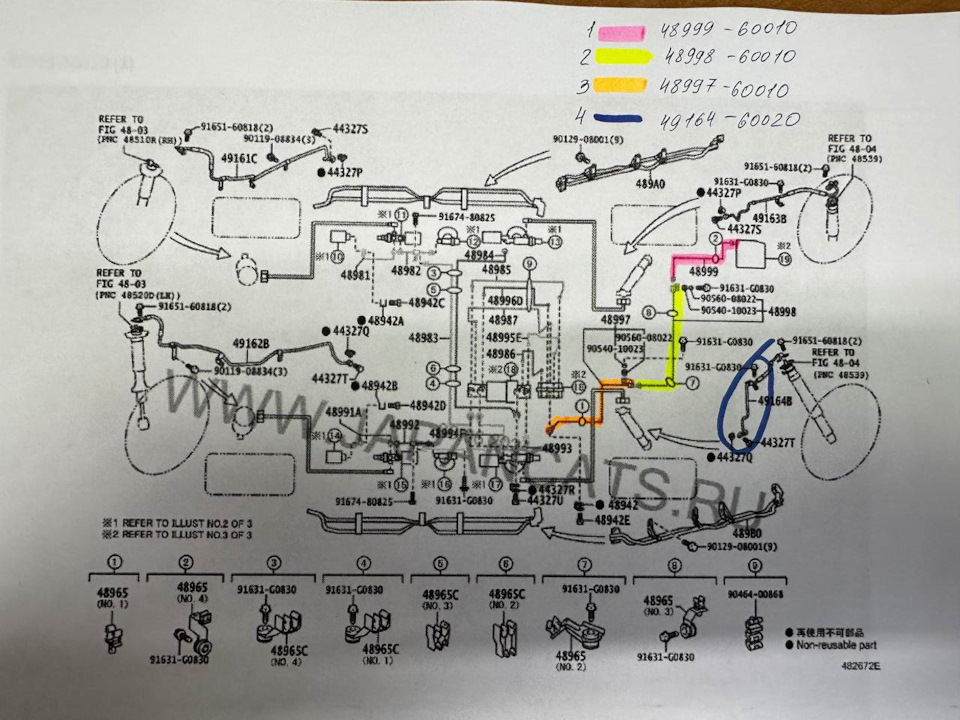 1 48999-60010
2 48998-60010
3 48997-60010
4 49164-60020
REFER TO
FIG 48-03
(PNC 48510R(RH))
91651-60818(2)
90119-08834(3)
44327S
49161C
●44327P
90129-08001(9)
489A0
REFER TO
FIG 48-04
(PNC 48539)
91651-60818(2)
91631-G0830
●44327P
44327S
49163B
※1 11
91674-80825
※1 10
※1
12
※1
13
48981
48982
48984
48985
9
3
5
2
48999
※2
19
91631-G0830
90560-08022
90540-10023
48998
8
REFER TO
FIG 48-03
(PNC 48520D(LH))
91651-60818(2)
48942C
●48942A
48996D
48987
48983
48995E
48986
48997
90560-08022
90540-10023
91631-G0830
●44327Q
49162B
90119-08834(3)
44327T
●48942B
6
4
※2 18
※2
18
7
91651-60818(2)
REFER TO
FIG 48-04
(PNC 48539)
91631-G0830
49164B
44327T
●44327Q
48942D
48991A
48992
48994F
1
48993
※1 14
※1 15
※1 16
※1 17
91674-80825
91631-G0830
●44327R
44327U
●48942
48942E
WWW.JAPANCATS.RU
489B0
90129-08001(9)
※1 REFER TO ILLUST NO.2 OF 3
※2 REFER TO ILLUST NO.3 OF 3
1
2
3
4
5
6
7
8
9
48965
(NO. 1)
48965
(NO. 4)
91631-G0830
91631-G0830
48965C
(NO. 4)
91631-G0830
48965C
(NO. 1)
48965C
(NO. 3)
48965C
(NO. 2)
91631-G0830
48965
(NO. 2)
48965
(NO. 3)
91631-G0830
90464-00868
● 再使用不可部品
● Non-reusable part
482672E